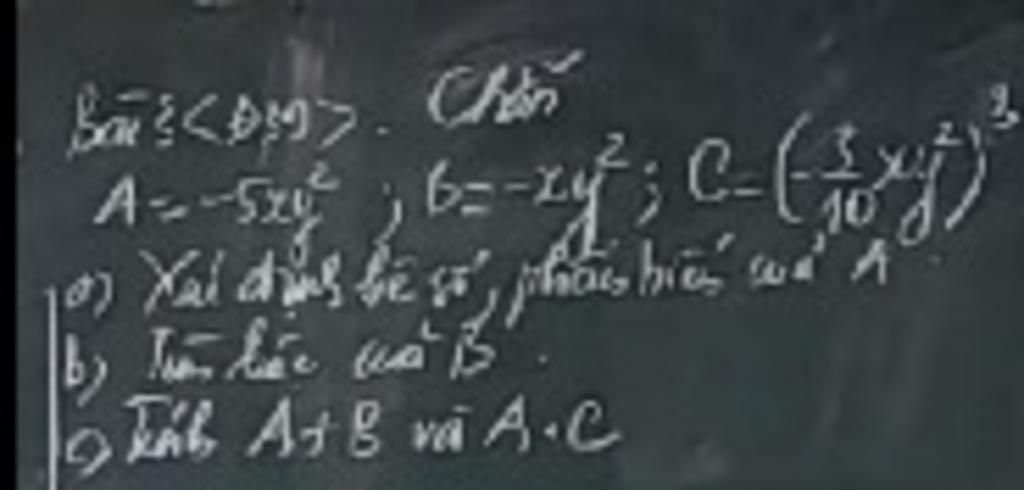 Chẵn
A = -5xy² ; B = -xy² ; C = (-3/10 xy²)³
a) Xác định hệ số, phần biến của A.
b) Tìm bậc của B.
c) Tính A + B và A . C